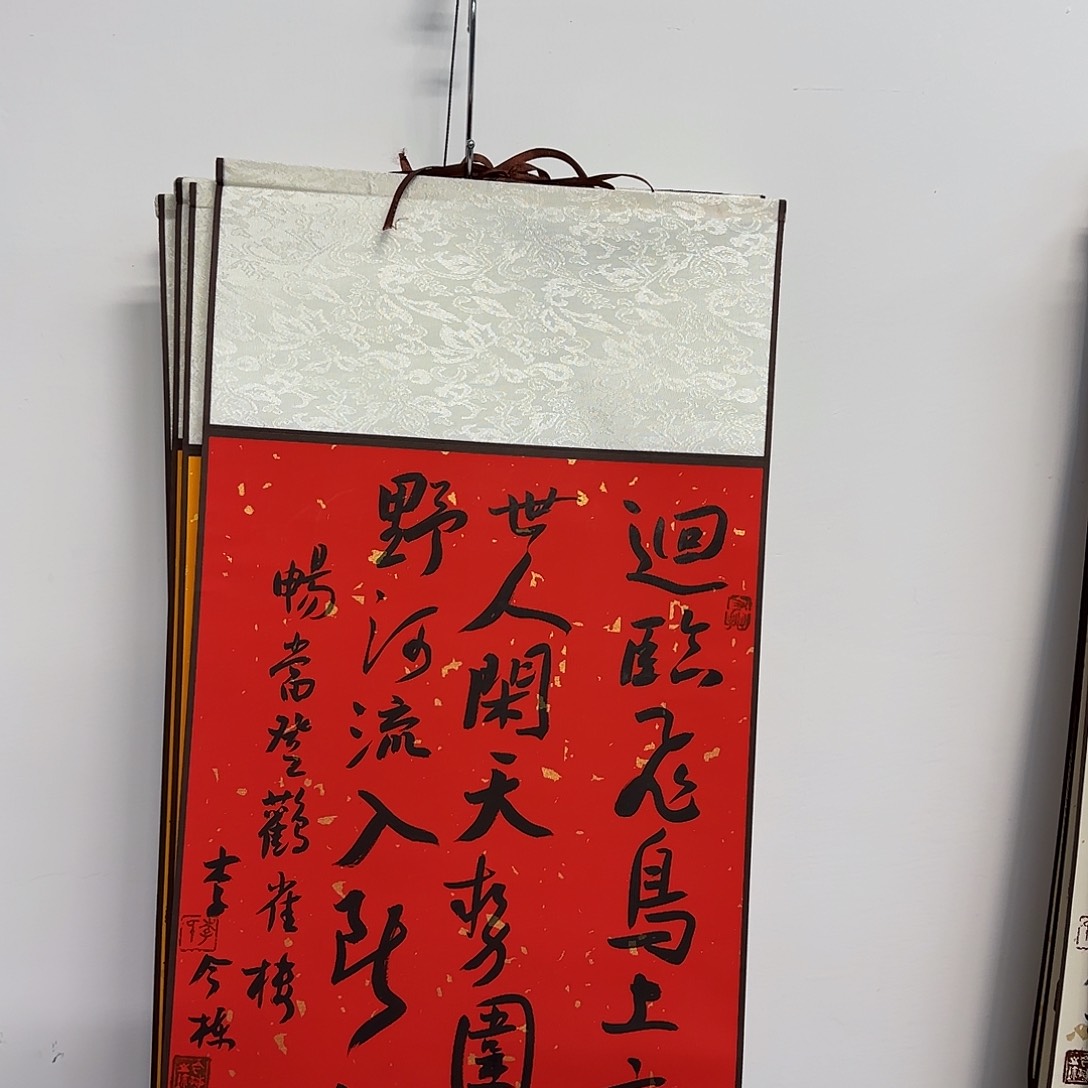 迴臨飛鳥上
世人閑天勢圍
野河流入断
暢當登鸛雀樓
李今栋